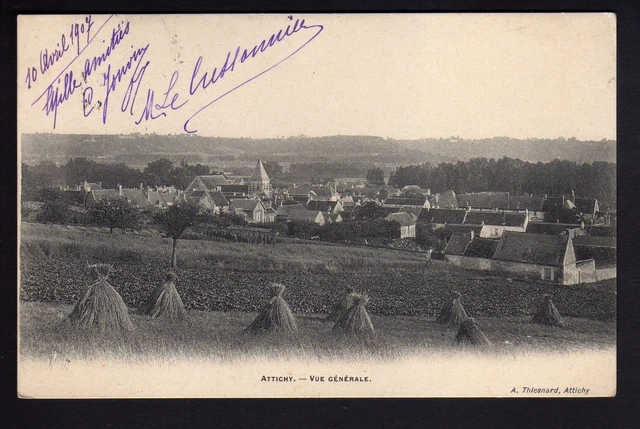 10 Avril 1907
Mille amitiés
C. Jouvin
M Le Cussonnier
ATTICHY. — VUE GÉNÉRALE.
A. Thiesnard, Attichy